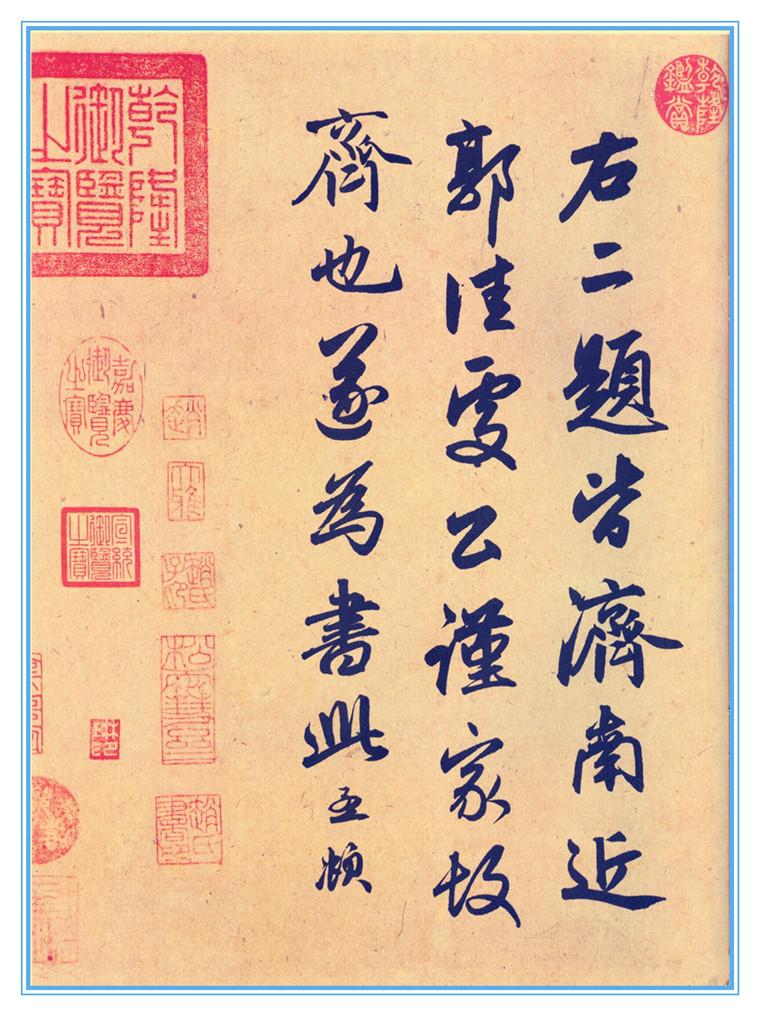 乾隆鑑賞
右二題皆濟南近
郭佳處公謹家故
齊也遂為書此孟頫
乾隆御覽之寶
趙
大雅
松雪齋
趙氏書印
嘉慶御覽之寶
宣統御覽之寶